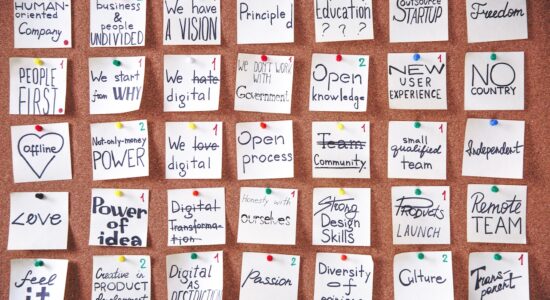 HUMAN-
oriented
Company.
business &
people
UNDIVIDED
We have
A VISION
Principled
Education
? ? ?
Outsource
STARTUP
Freedom
PEOPLE
FIRST
We start
from WHY
1
We hate
digital
1
We DON'T WORK
WITH
Government
1
Open
knowledge
2
NEW
USER
EXPERIENCE
NO
COUNTRY
offline
Not-only-money
POWER
2
We love
digital
1
Open
process
Team
Community
1
small
qualified
team
1
Independent
Love
Power
of
idea
1
Digital
Transforma-
tion
1
Honesty with
ourselves
1
Strong
Design
Skills
Products
LAUNCH
1
Remote
TEAM
1
feel
it
2
Creative in
PRODUCT
2
Digital
AS
1
Passion
2
Diversity
of
opinions
1
Culture
2
Trans-
parent
1